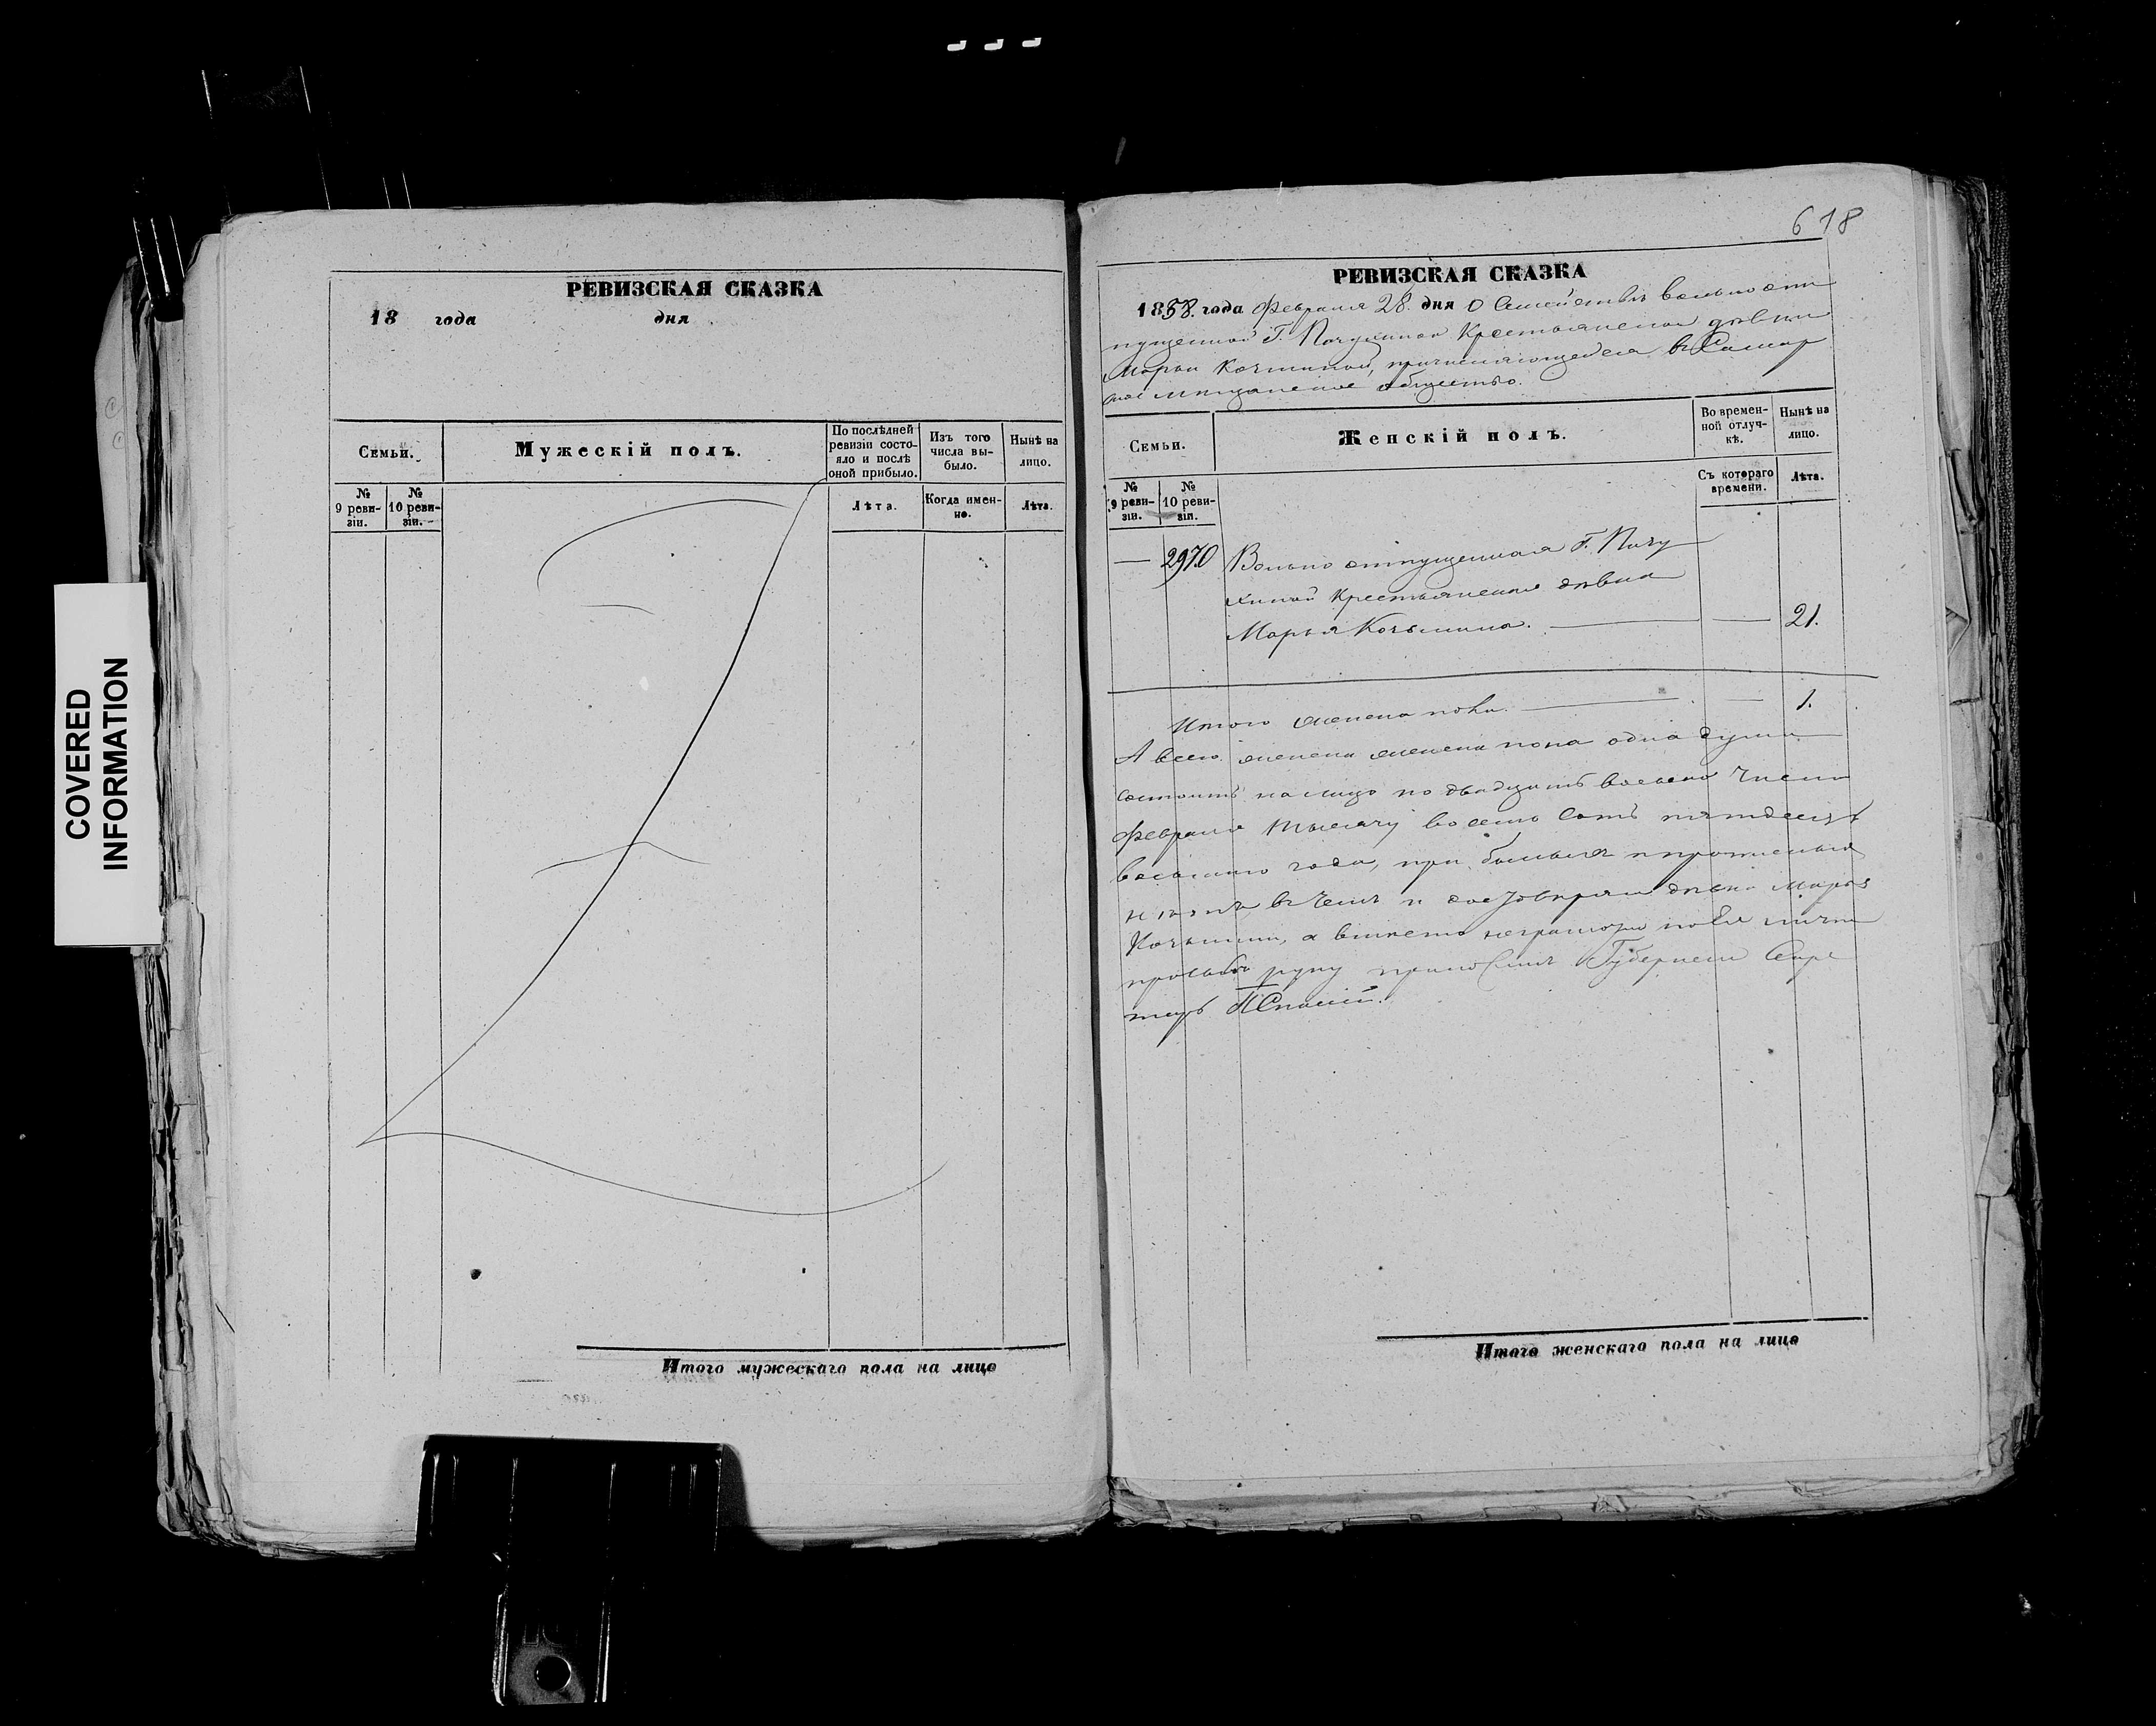 COVERED
INFORMATION
РЕВИЗСКАЯ СКАЗКА
18 года дня
Семьи.
Мужескій полъ.
По послѣдней ревизіи состояло и послѣ оной прибыло.
Изъ того числа выбыло.
Нынѣ на лицо.
№ 9 ревизіи.
№ 10 ревизіи.
Лѣта.
Когда именно.
Лѣта.
Итого мужескаго пола на лицо
618
РЕВИЗСКАЯ СКАЗКА
1858. года Февраля 28. дня О Семействѣ вольноотпущенной Г.
Крестьянской дѣвки
Марьи причисляющейся въ
мѣщанское общество.
Семьи.
Женскій полъ.
Во временной отлучкѣ.
Нынѣ на лицо.
№ 9 ревизіи.
№ 10 ревизіи.
Съ котораго времени.
Лѣта.
— 2970 Вольно отпущенная Г. Пичу
хиной Крестьянская дѣвка
Марья Козьмина. — — 21.
Итого женска пола. — — 1.
А всего женска пола одна душа
состоитъ на лицо по двадцать восьмое число
Февраля тысячу восемь сотъ пятдесятъ
восьмаго года, при
дѣвка Марья
Козьмина, а вмѣсто неграмотной по ея личной
прозьбѣ руку приложилъ Губернскій Секре
тарь
Итого женскаго пола на лицо